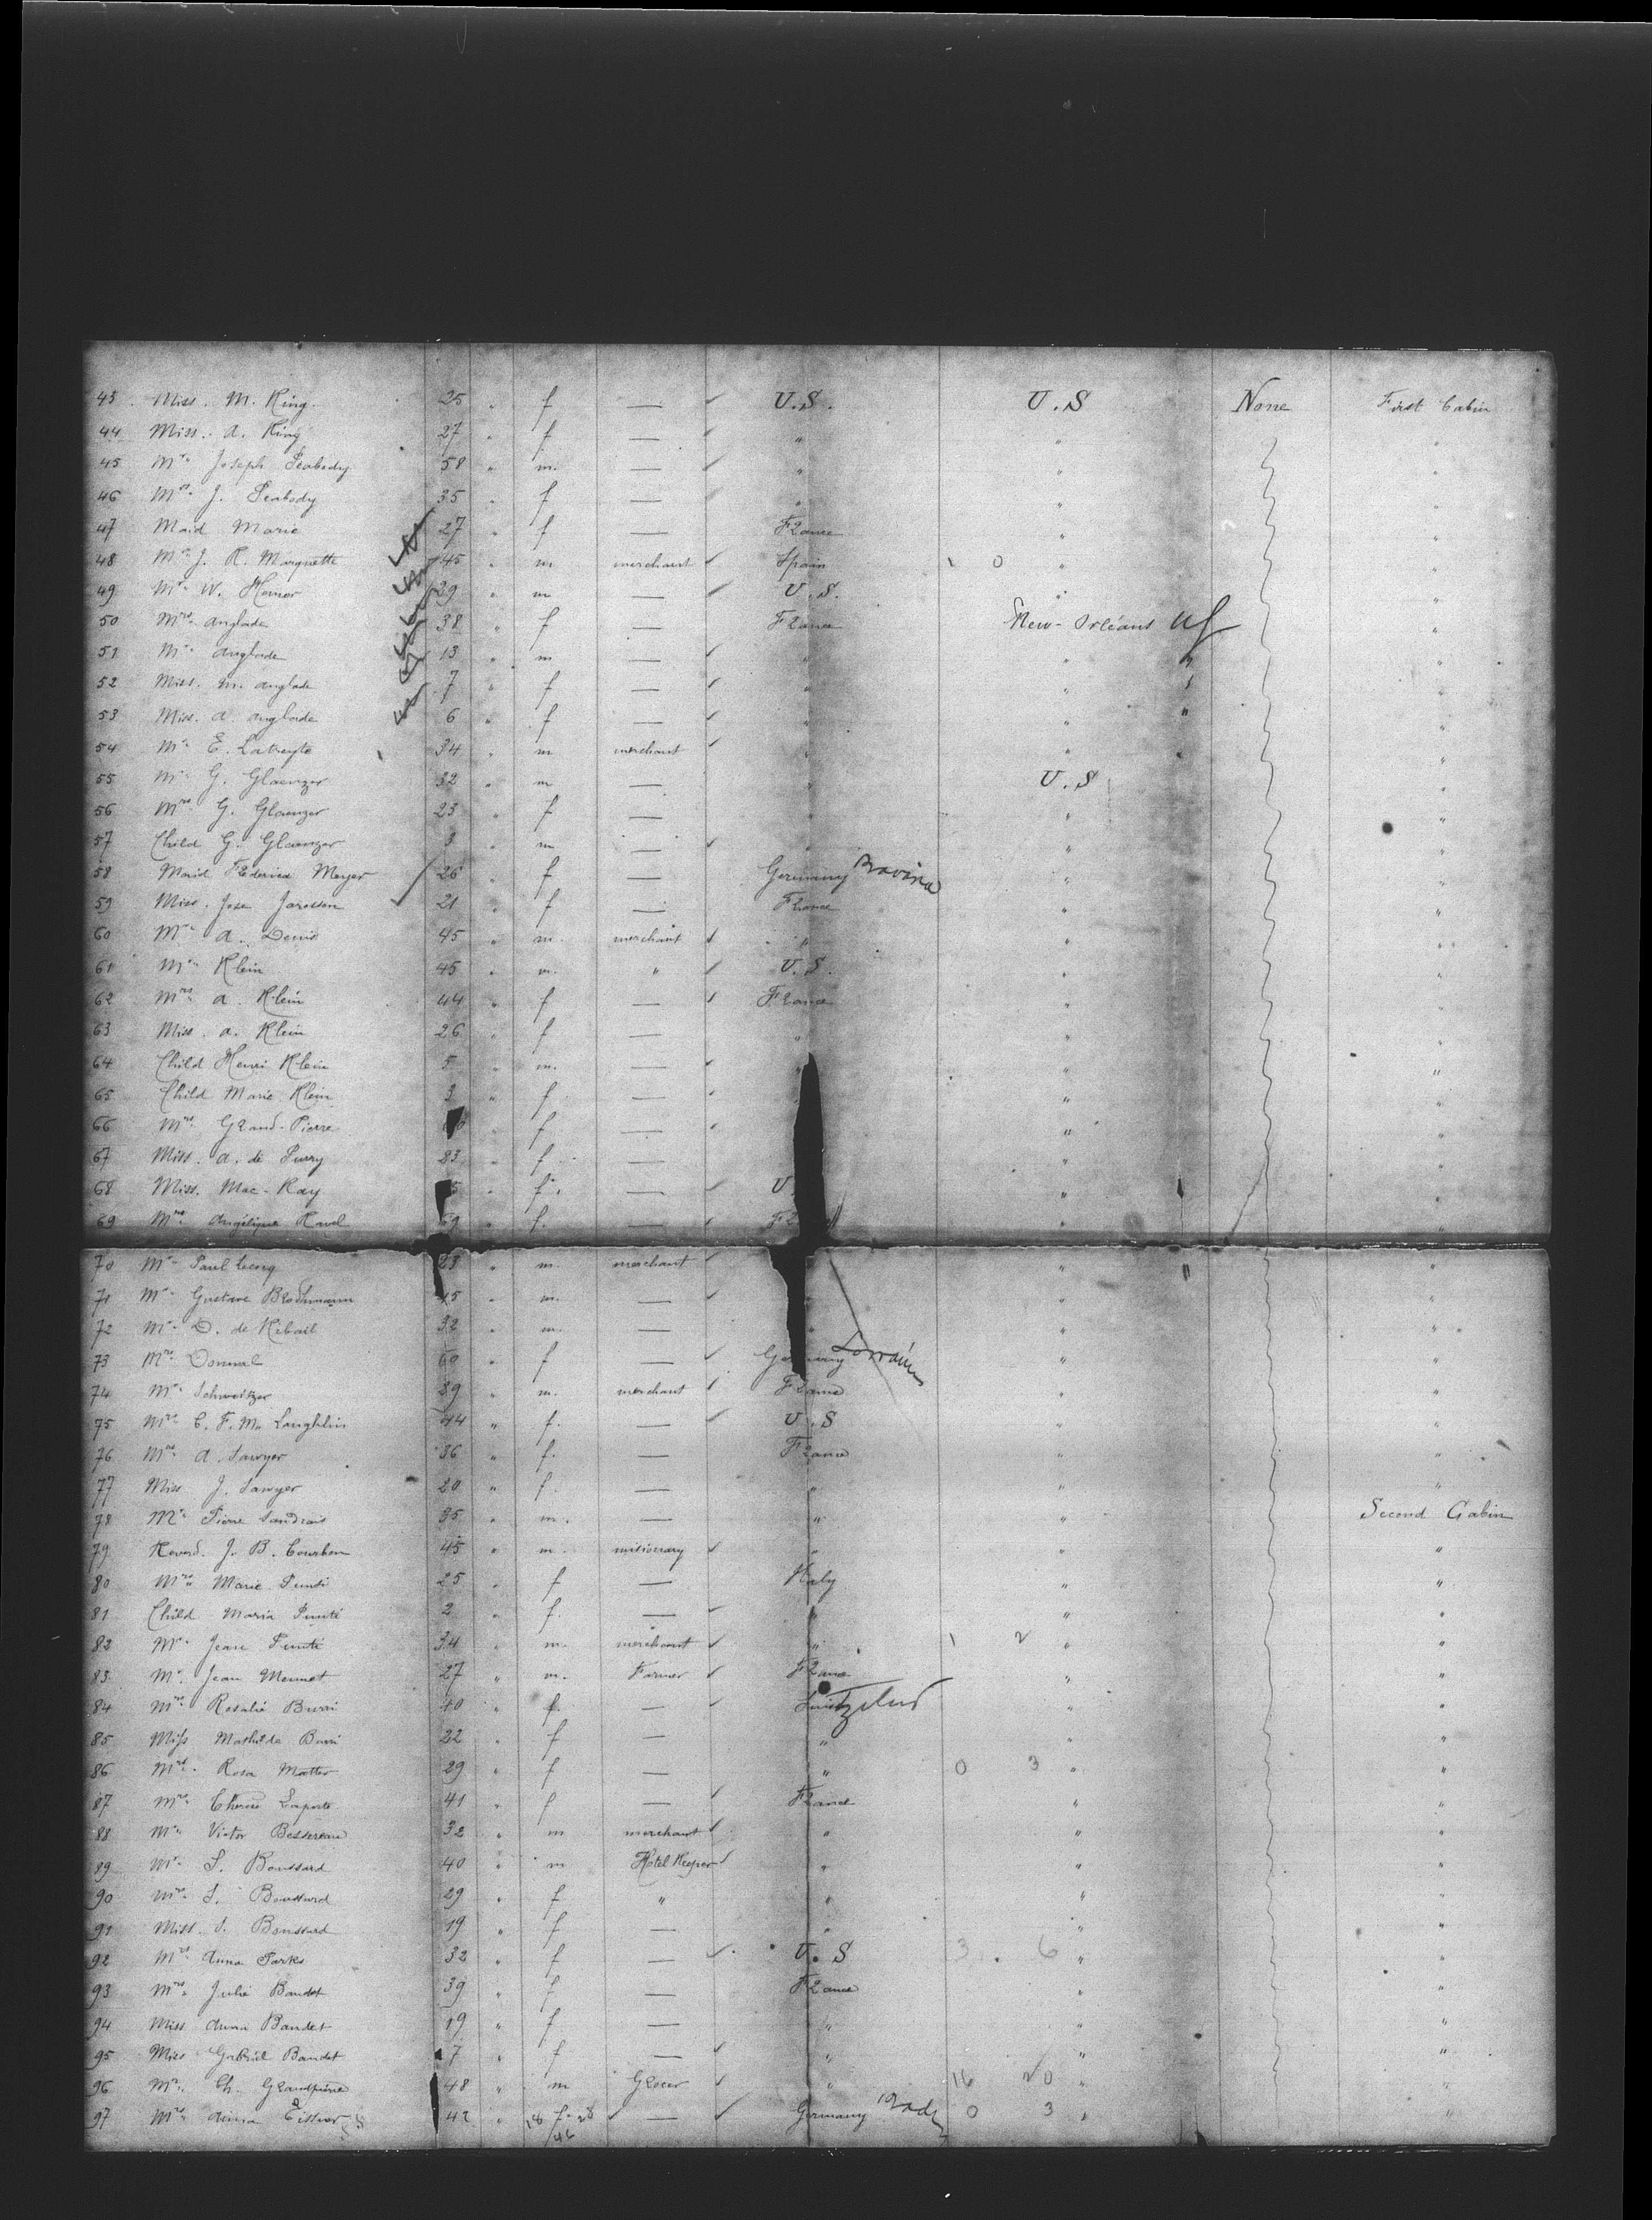 43. Miss. M. King. 25 " f — U.S. U.S None First Cabin
44 Miss. A. King 27 " f — " " "
45 Mr. Joseph Peabody 58 " m. — " " "
46 Mrs. J. Peabody 35 " f — " " "
47 Maid Marie 27 " f — France " "
48 Mr. J. R. Marquette 45 " m merchant Spain 1 0 " "
49 Mr. W. Homer 39 " m — U.S. " "
50 Mrs. Anglade 38 " f — France New-Orléans "
51 Mr. Anglade 13 " m — " " "
52 Miss. M. Anglade 7 " f — " " "
53 Miss. A. Anglade 6 " f — " " "
54 Mr. E. 34 " m merchant " " "
55 Mr. G. Glaenzer 32 " m — " U.S "
56 Mrs. G. Glaenzer 23 " f — " "
57 Child G. Glaenzer 3 " m — " " "
58 Maid Federica Meyer 26 " f — Germany Bavaria " "
59 Miss. Jose 21 " f — France " "
60 Mr. A. Denis 45 " m. merchant " " "
61 Mr. Klein 45 " m. " U.S. " "
62 Mrs. A. Klein 44 " f — France " "
63 Miss. A. Klein 26 " f — " " "
64 Child Henri Klein 5 " m. — " " "
65 Child Marie Klein 3 " f — " " "
66 Mrs. Grand-Pierre f — " "
67 Miss. A. de 23 " f — " "
68 Miss. Mac-Kay 5 " f. — U. " "
69 Mrs. Angélique Ravel 69 " f. — " "
70 Mr. Paul 23 " m. merchant " "
71 Mr. Gustave Brothmann 45 " m. — " " "
72 Mr. D. de 32 " m. — " " "
73 Mrs. 60 " f — Germany Lorraine " "
74 Mr. Schweitzer 39 " m. merchant France " "
75 Mrs. C. F. Mc Laughlin 44 " f. — U.S " "
76 Mrs. A. Sawyer 36 " f. — France " "
77 Miss J. Sawyer 20 " f. — " " "
78 Mr. Pierre 35 " m. — " " Second Cabin
79 Reverd. J. B. Courbon 45 " m. misionary " "
80 Mrs. Marie 25 " f — Italy " "
81 Child Maria 2 " f. — " " "
82 Mr. Jean 34 " m. merchant " 1 2 " "
83 Mr. Jean Mennet 27 " m. Farmer France " "
84 Mrs. Rosalie Burri 40 " f. — Switzelnd " "
85 Miss Mathilde Burri 22 " f — " " "
86 Mrs. Rosa Matter 29 " f — " 0 3 " "
87 Mrs. Laporte 41 " f — France " "
88 Mr. Victor Bessereau 32 " m merchant " " "
89 Mr. S. Boussard 40 " m Hotel Keeper " " "
90 Mrs. S. Boussard 29 " f " " " "
91 Miss. S. Boussard 19 " f — " " "
92 Mrs. Anna Parks 32 " f — U.S 3. 6 " "
93 Mrs. Julie Baudet 39 " f — France " "
94 Miss Anna Baudet 19 " f — " " "
95 Miss Gabriel Baudet 7 " f — " " "
96 Mr. Ch. Grandpierre 48 " m Grocer " 16 20 " "
97 Mrs. 42 " 18 f. 28 — Germany Baden 0 3 "
46